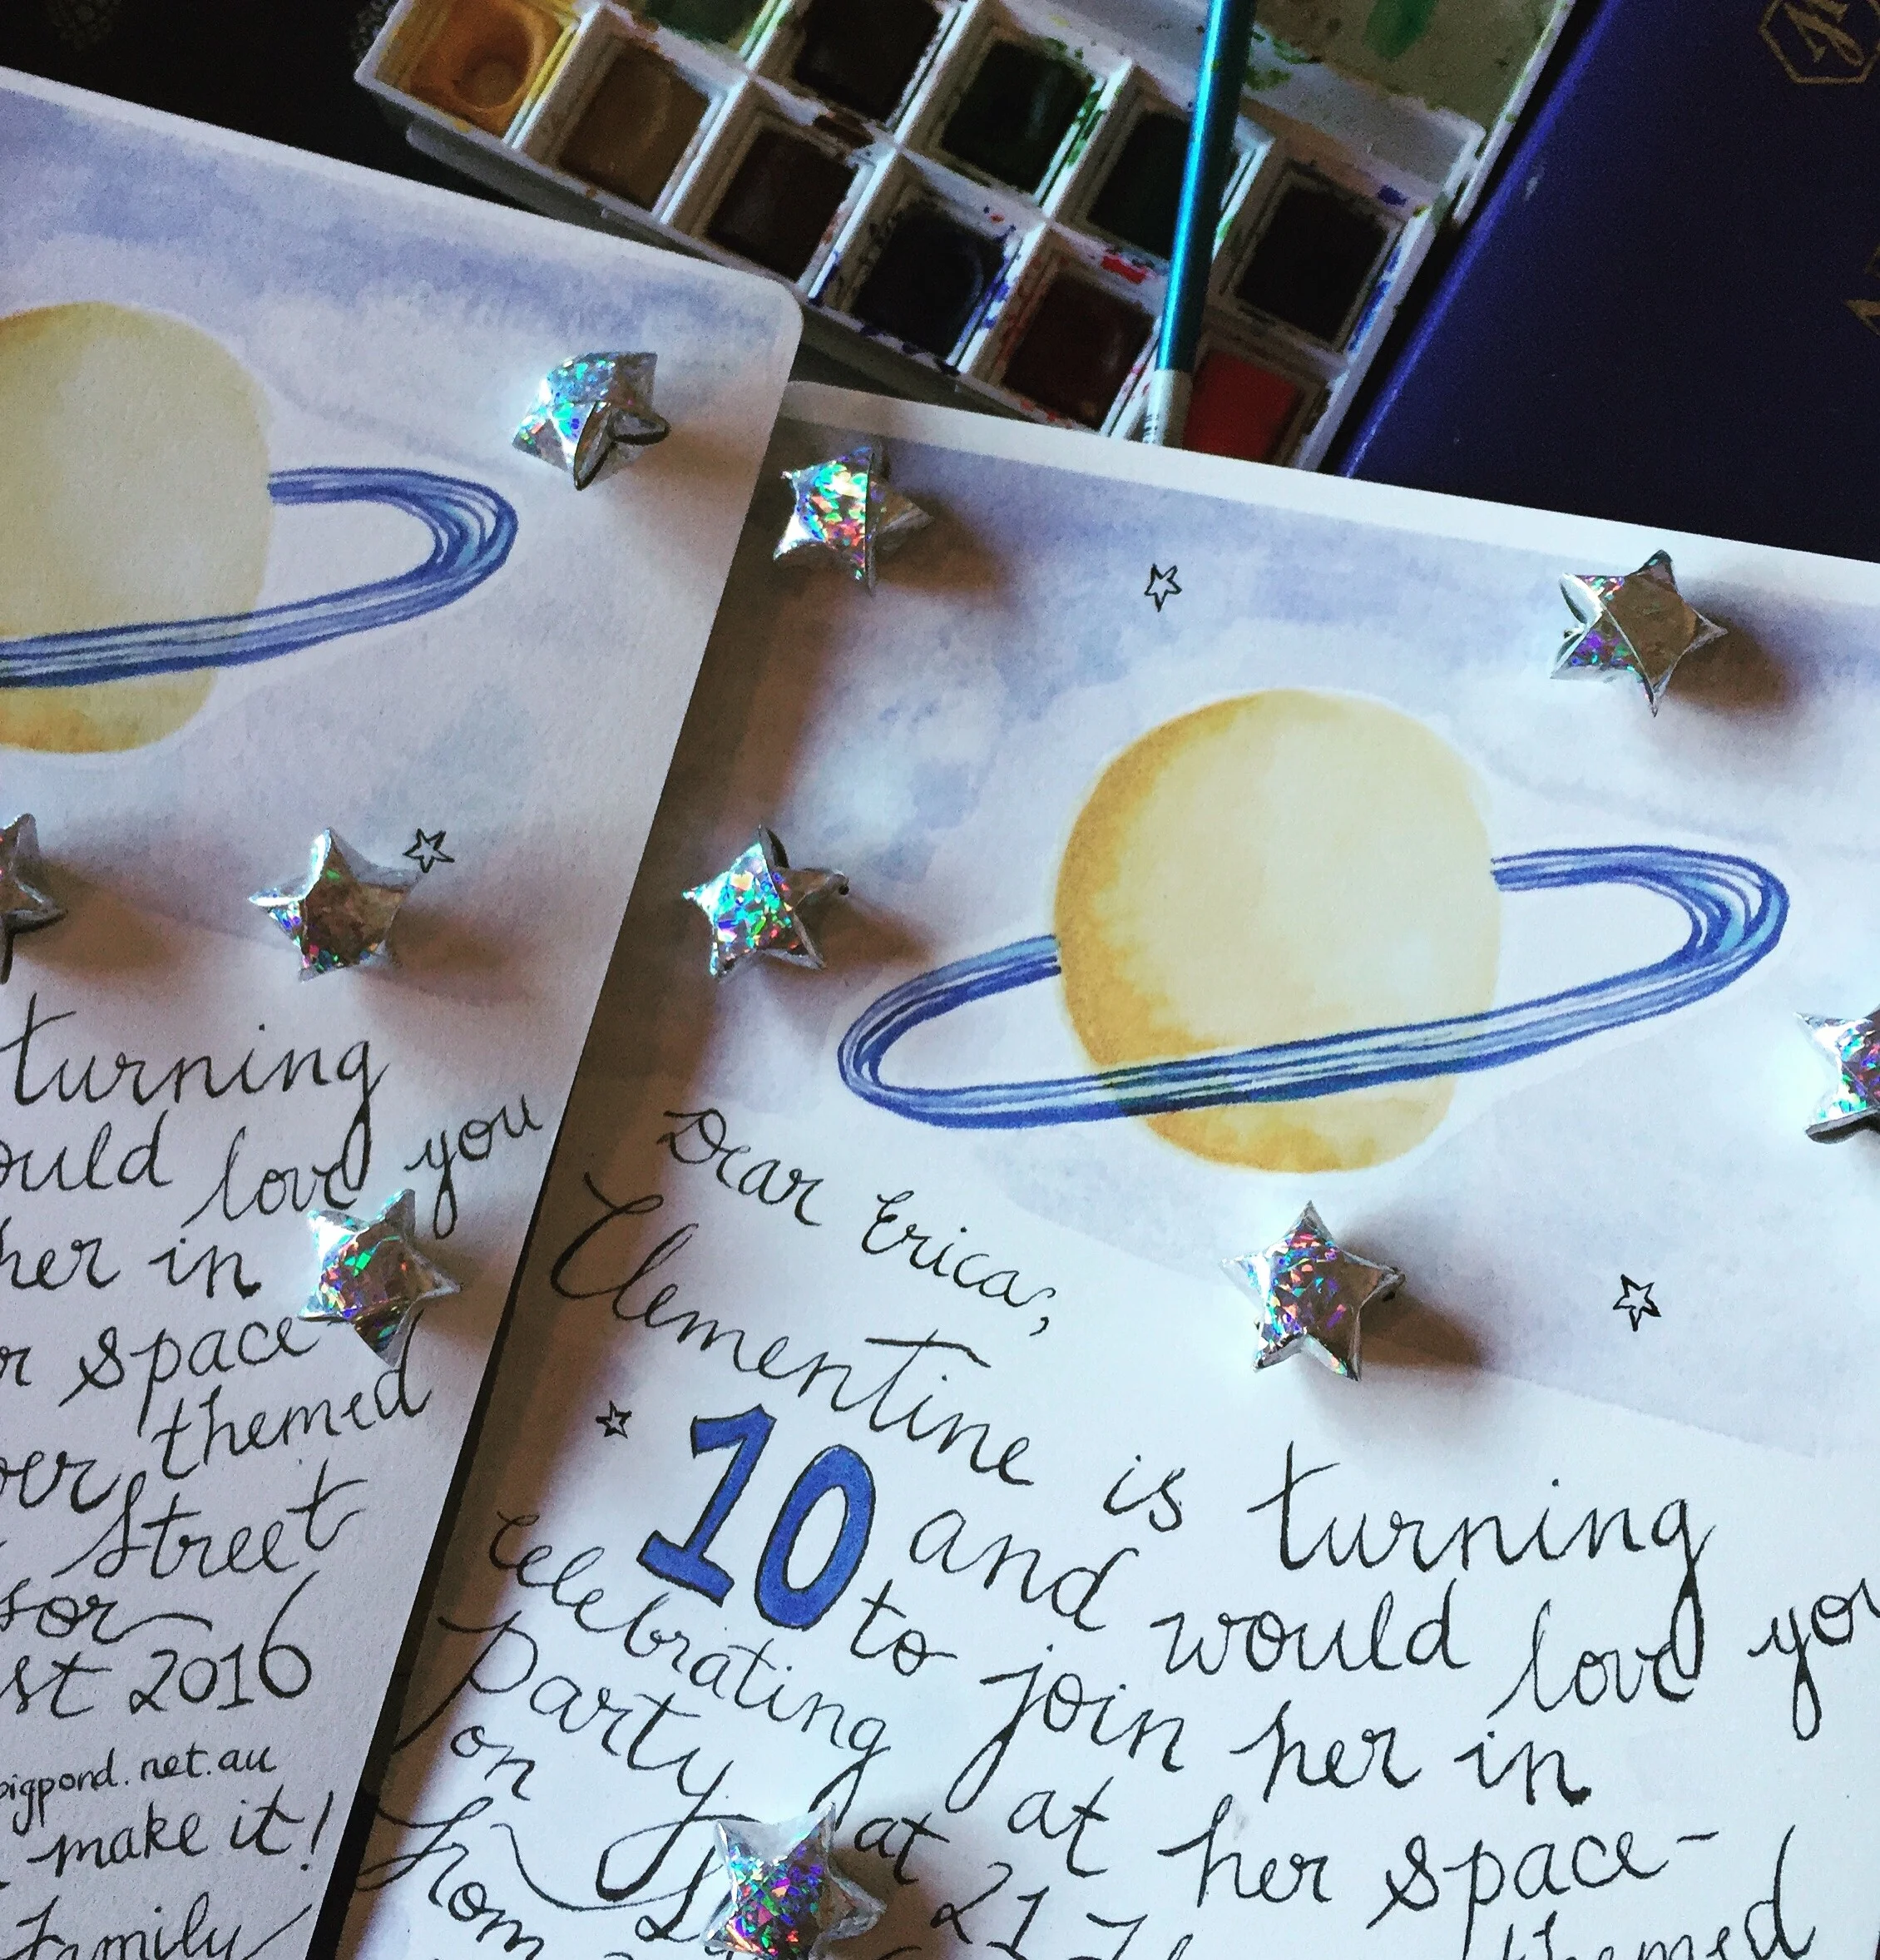 turning
ould love you
her in
r space
over themed
Street
sor
st 2016
bigpond.net.au
make it!
Family
Dear Erica,
Clementine is turning
10 and would love you
to join her in
celebrating at her space-
Party at 21 themed
on
from